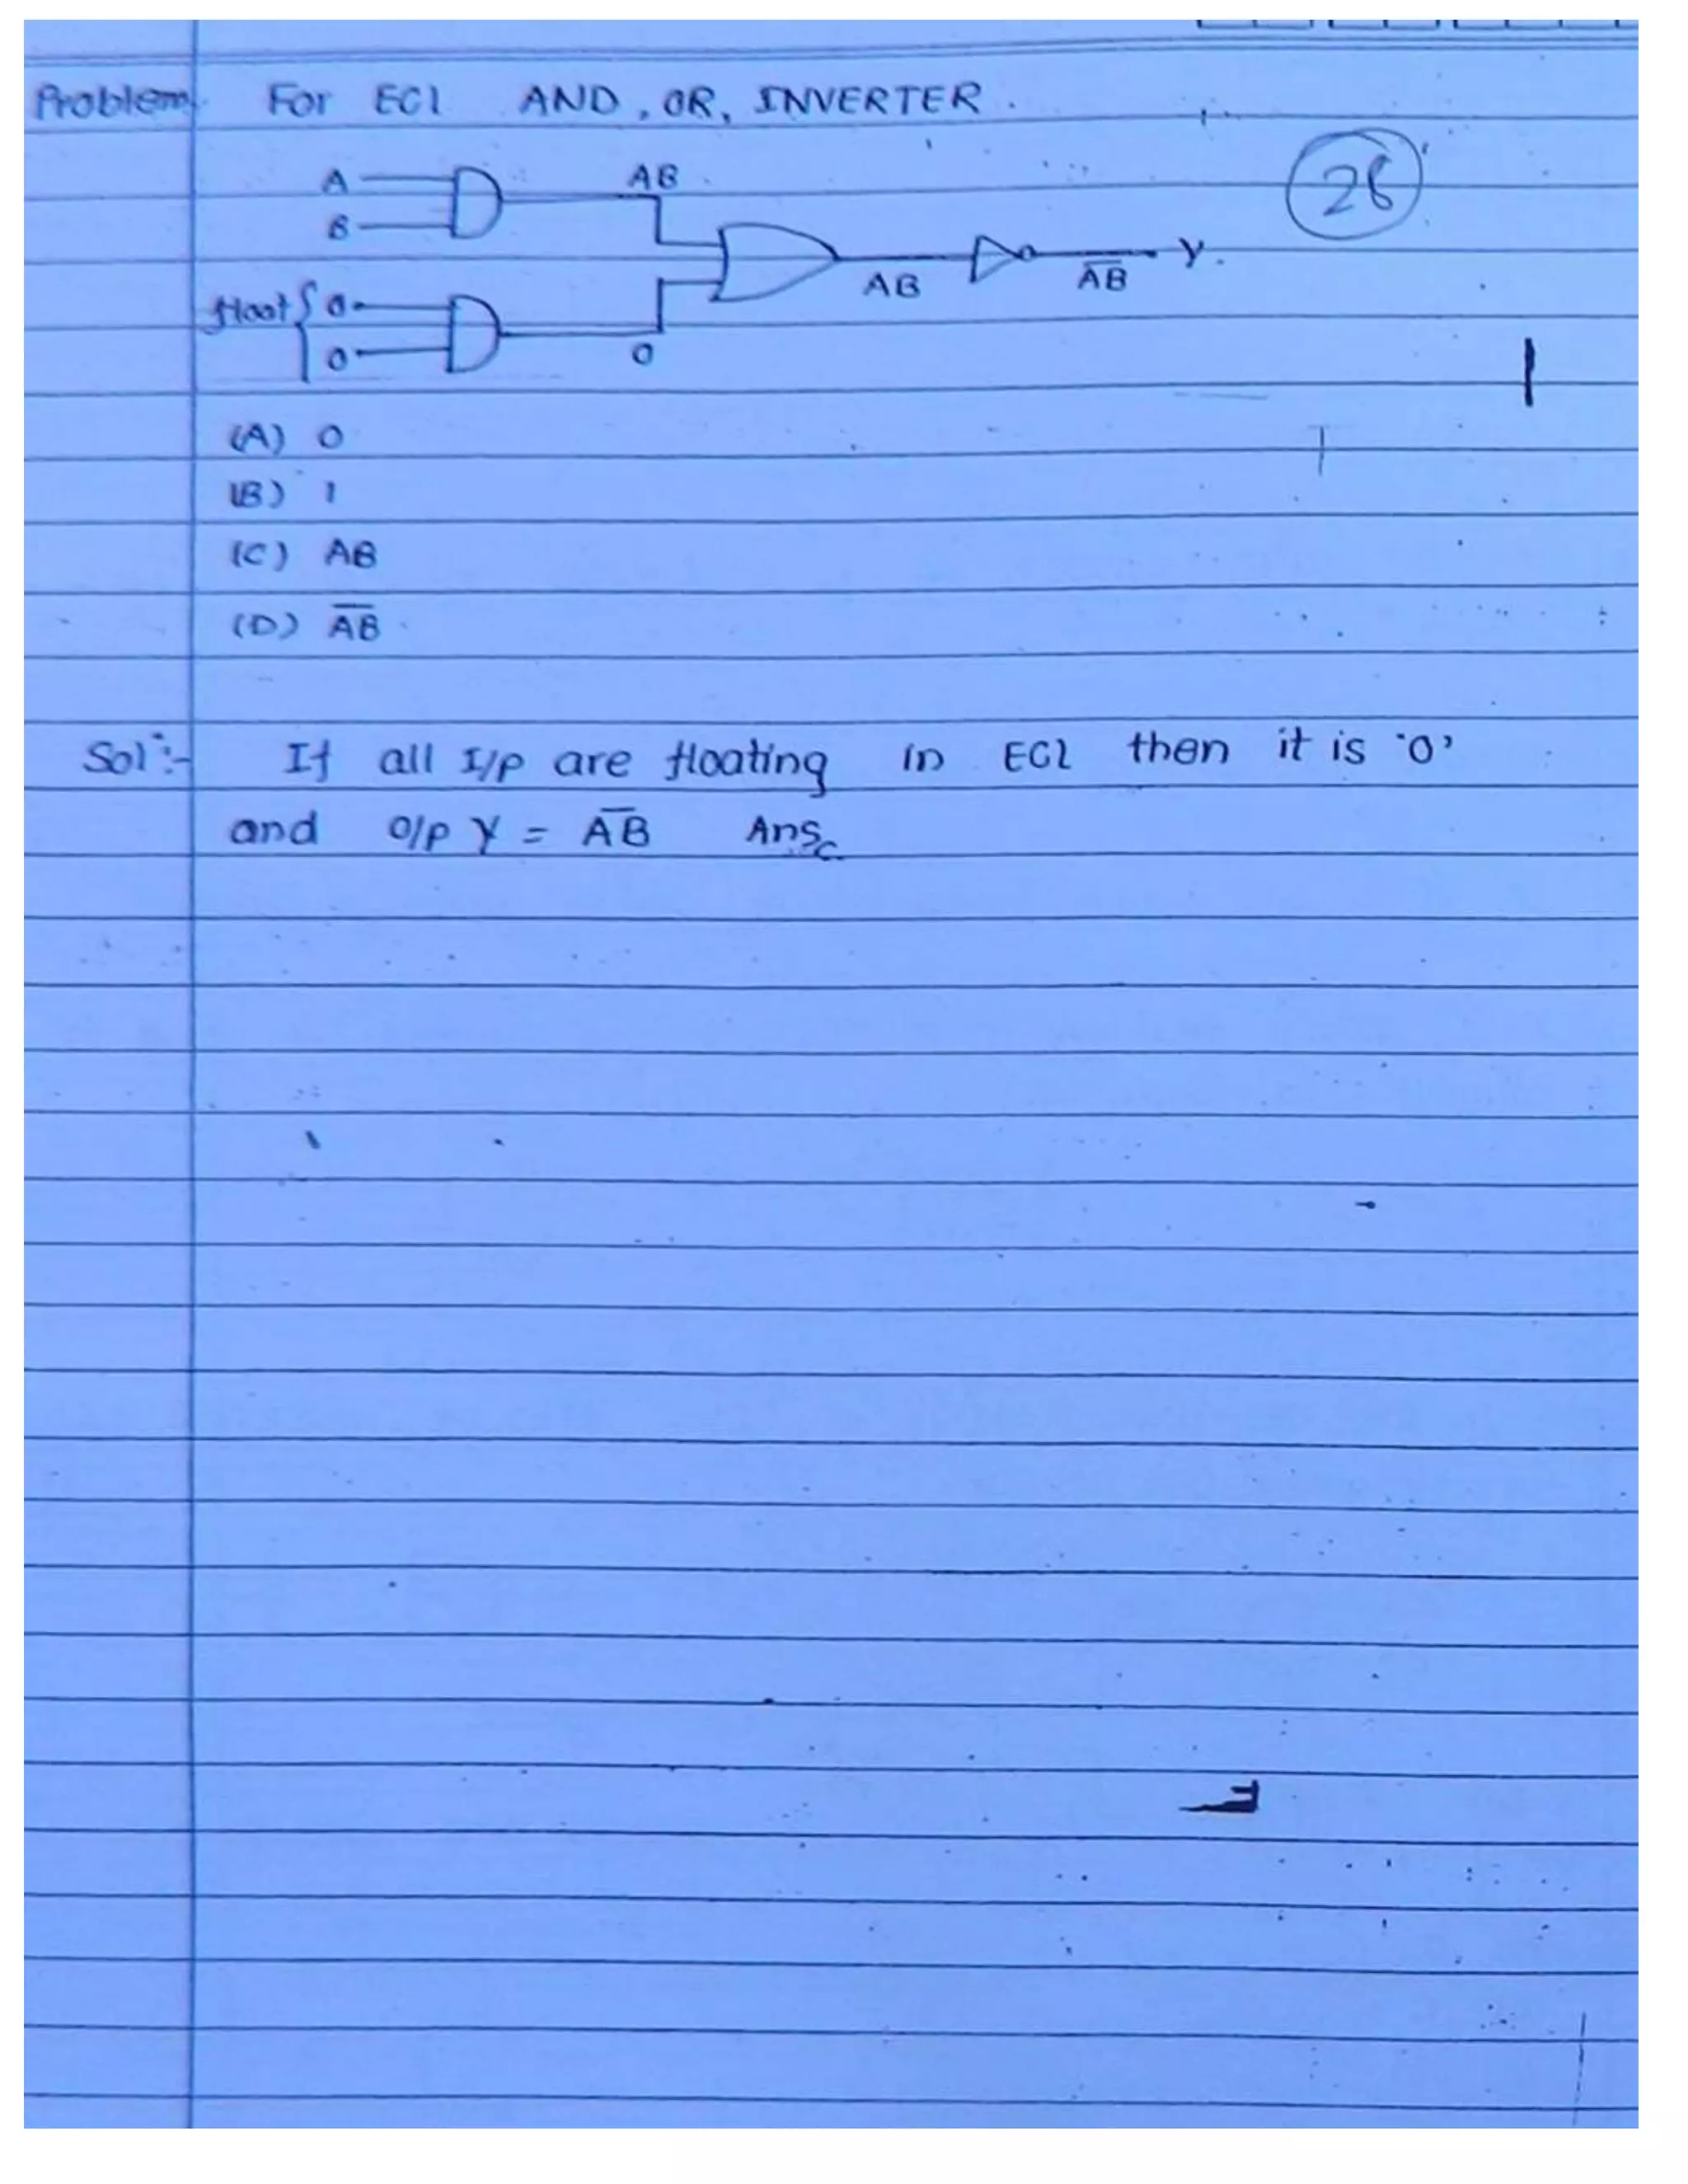 Problem For ECL AND, OR, INVERTER.
26
A
B
AB
float
0
0
0
AB
A̅B̅
Y.
(A) 0
(B) 1
(C) AB
(D) A̅B̅
Solⁿ:- If all I/p are floating in ECL then it is '0'
and O/p Y = A̅B̅ Ans